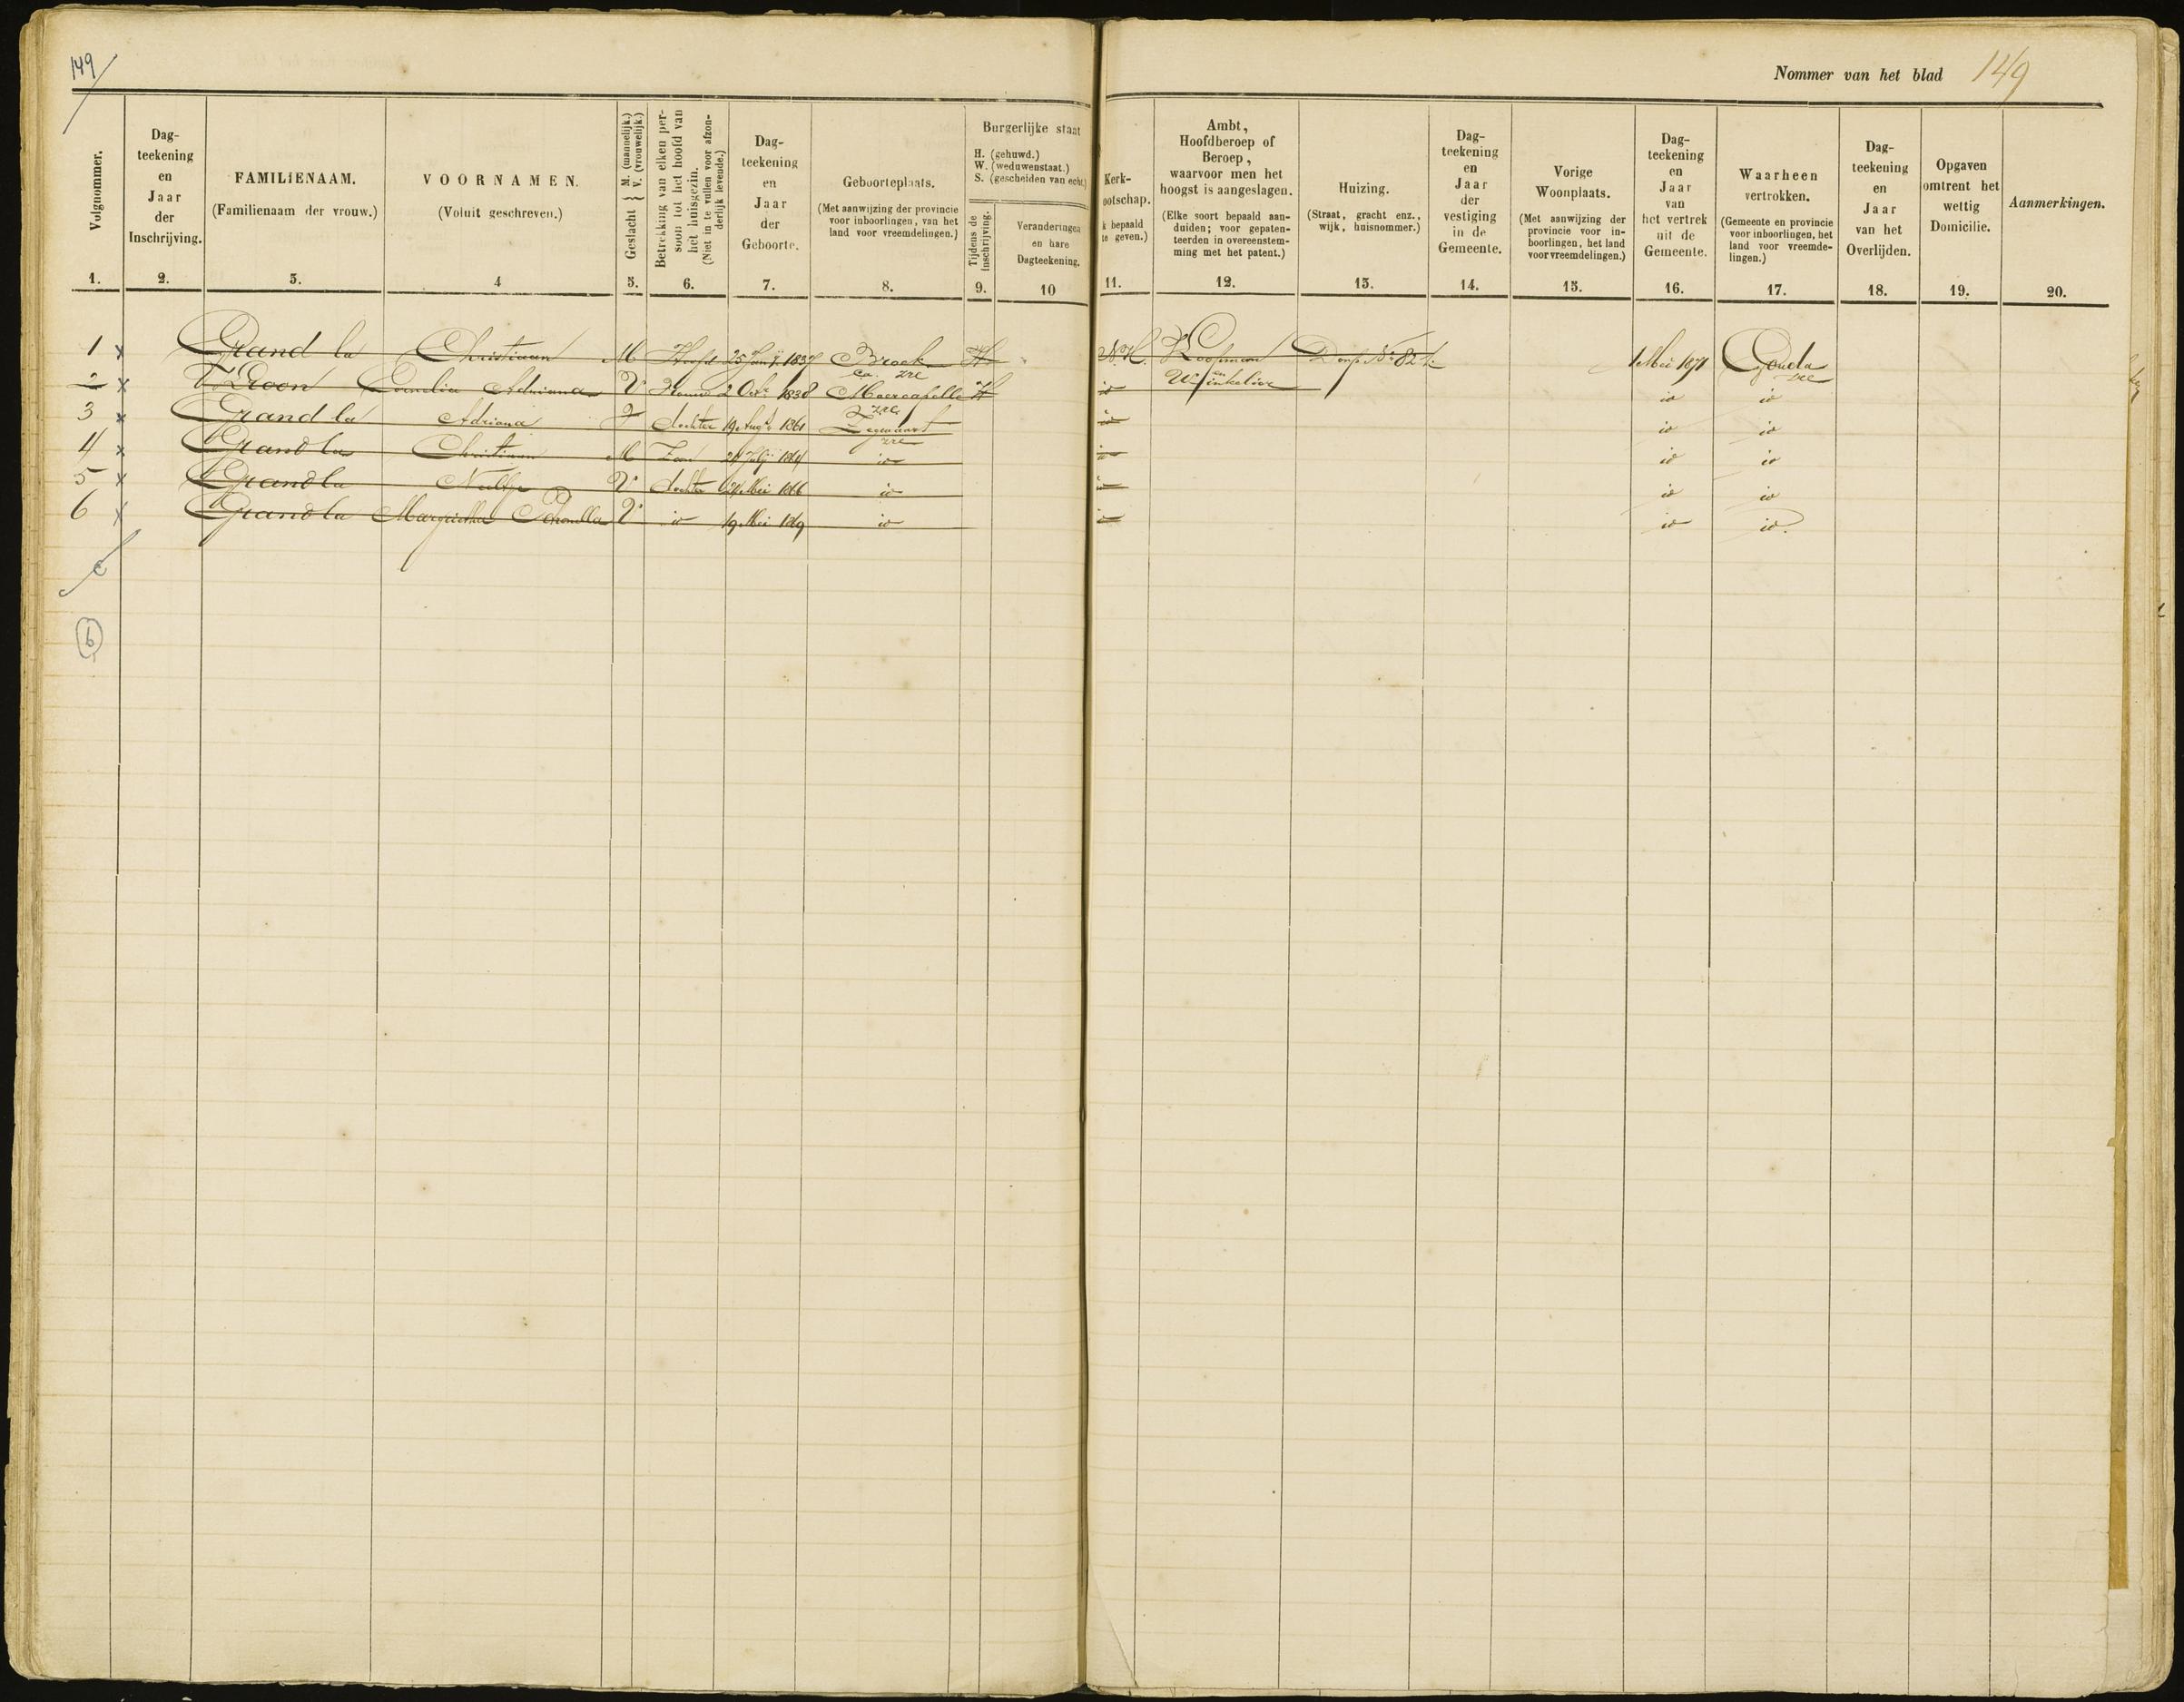 149
Nommer van het blad 149
Volgnommer.
1.
Dag-
teekening
en
Jaar
der
Inschrijving.
2.
FAMILIENAAM.
(Familienaam der vrouw.)
3.
VOORNAMEN.
(Voluit geschreven.)
4
Geslacht { M. (mannelijk.)
V. (vrouwelijk.)
5.
Betrekking van elken per-
soon tot het hoofd van
het huisgezin.
(Niet in te vullen voor afzon-
derlijk levende.)
6.
Dag-
teekening
en
Jaar
der
Geboorte.
7.
Geboorteplaats.
(Met aanwijzing der provincie
voor inboorlingen, van het
land voor vreemdelingen.)
8.
Burgerlijke staat
H. (gehuwd.)
W. (weduwenstaat.)
S. (gescheiden van echt.)
Tijdens de
Inschrijving.
9.
Veranderingen
en hare
Dagteekening.
10
Kerk-
ootschap.
k bepaald
te geven.)
11.
Ambt,
Hoofdberoep of
Beroep,
waarvoor men het
hoogst is aangeslagen.
(Elke soort bepaald aan-
duiden; voor gepaten-
teerden in overeenstem-
ming met het patent.)
12.
Huizing.
(Straat, gracht enz.,
wijk, huisnommer.)
13.
Dag-
teekening
en
Jaar
der
vestiging
in de
Gemeente.
14.
Vorige
Woonplaats.
(Met aanwijzing der
provincie voor in-
boorlingen, het land
voor vreemdelingen.)
15.
Dag-
teekening
en
Jaar
van
het vertrek
uit de
Gemeente.
16.
Waarheen
vertrokken.
(Gemeente en provincie
voor inboorlingen, het
land voor vreemde-
lingen.)
17.
Dag-
teekening
en
Jaar
van het
Overlijden.
18.
Opgaven
omtrent het
wettig
Domicilie.
19.
Aanmerkingen.
20.
1 x Grand la Christiaan M Hoofd 25 1837 Broek ca. zre H N.H. Koopman en Winkelier Dorp No 82 1 Mei 1871 Gouda zre
2 x Cornelia Adriana V Vrouw 2 Octr 1838 Moercapelle zre H id id id
3 x Grand la Adriana V dochter 19 Augs 1861 Zegwaart zre id id id
4 x Grand la Christiaan M Zoon Julij 1864 id id id id
5 x Grand la Neeltje V dochter Mei 1866 id id id id
6 x Grand la Margaretha V id 19 Mei 1869 id id id id
6